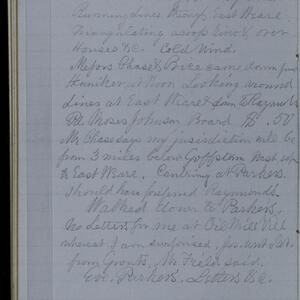 Running lines through East Weare
Triangulating across river & over
Houses &c. Cold Wind.
Messrs Chase & Brice came down from
Henniker at Noon Looking around
Lines at East Weare & Raymonds
Pd. Moses Johnson Board $ .50
Mr Chase says my jurisdiction will be
from 3 miles below Goffstown West up
to East Weare. Centring at Parkers.
Should have preferred Raymonds.
Walked down to Parkers.
No Letters for me at Oil Mill Vill
whereat I am surprised, for sent
from Grouts, Mr Field said.
Eve. Parkers. Letters &c.